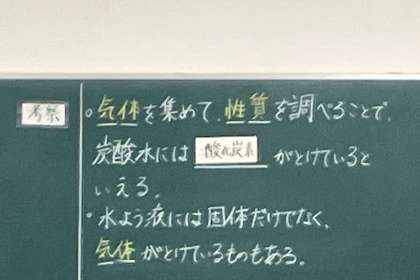 考察
。気体を集めて、性質を調べることで、
炭酸水には 二酸化炭素 がとけていると
いえる。
・水よう液には固体だけでなく、
気体がとけているものもある。